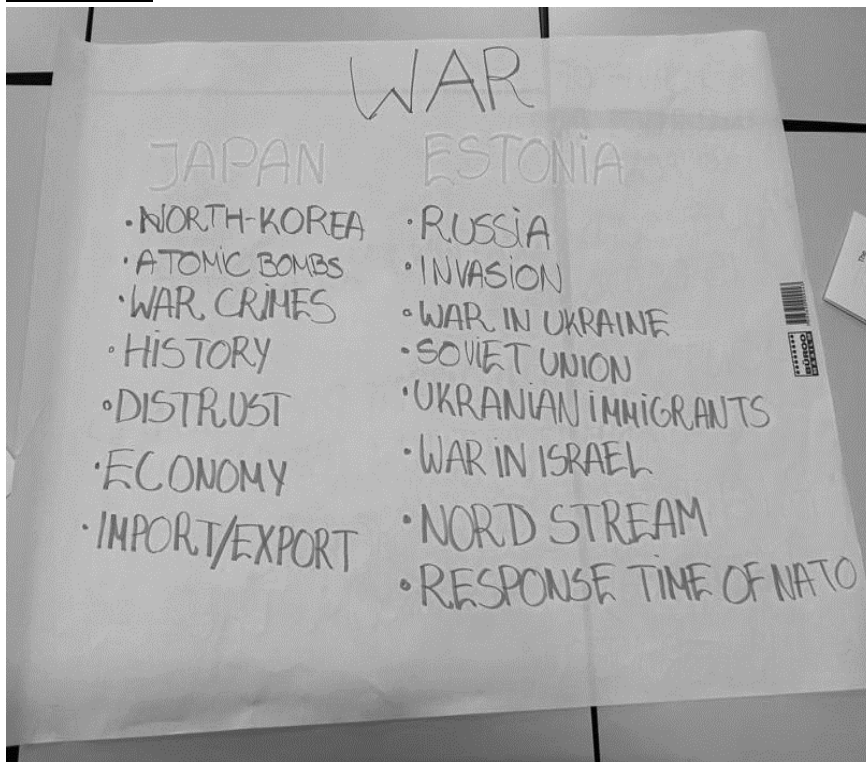 WAR
JAPAN
• NORTH-KOREA
• ATOMIC BOMBS
• WAR CRIMES
• HISTORY
• DISTRUST
• ECONOMY
• IMPORT/EXPORT
ESTONIA
• RUSSIA
• INVASION
• WAR IN UKRAINE
• SOVIET UNION
• UKRANIAN IMMIGRANTS
• WAR IN ISRAEL
• NORD STREAM
• RESPONSE TIME OF NATO
BÜROO